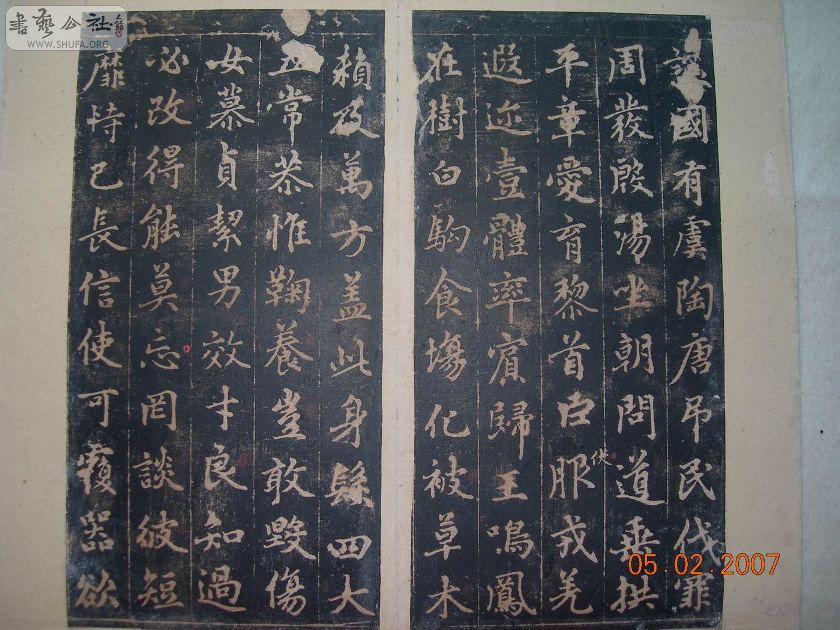 書藝公社
WWW.SHUFA.ORG
讓國有虞陶唐吊民伐罪
周發殷湯坐朝問道垂拱
平章愛育黎首臣服戎羌
伏
遐迩壹體率賓歸王鳴鳳
在樹白駒食場化被草木
賴及萬方盖此身髮四大
五常恭惟鞠養豈敢毀傷
女慕貞絜男效才良知過
必改得能莫忘罔談彼短
靡恃己長信使可覆器欲
05.02.2007